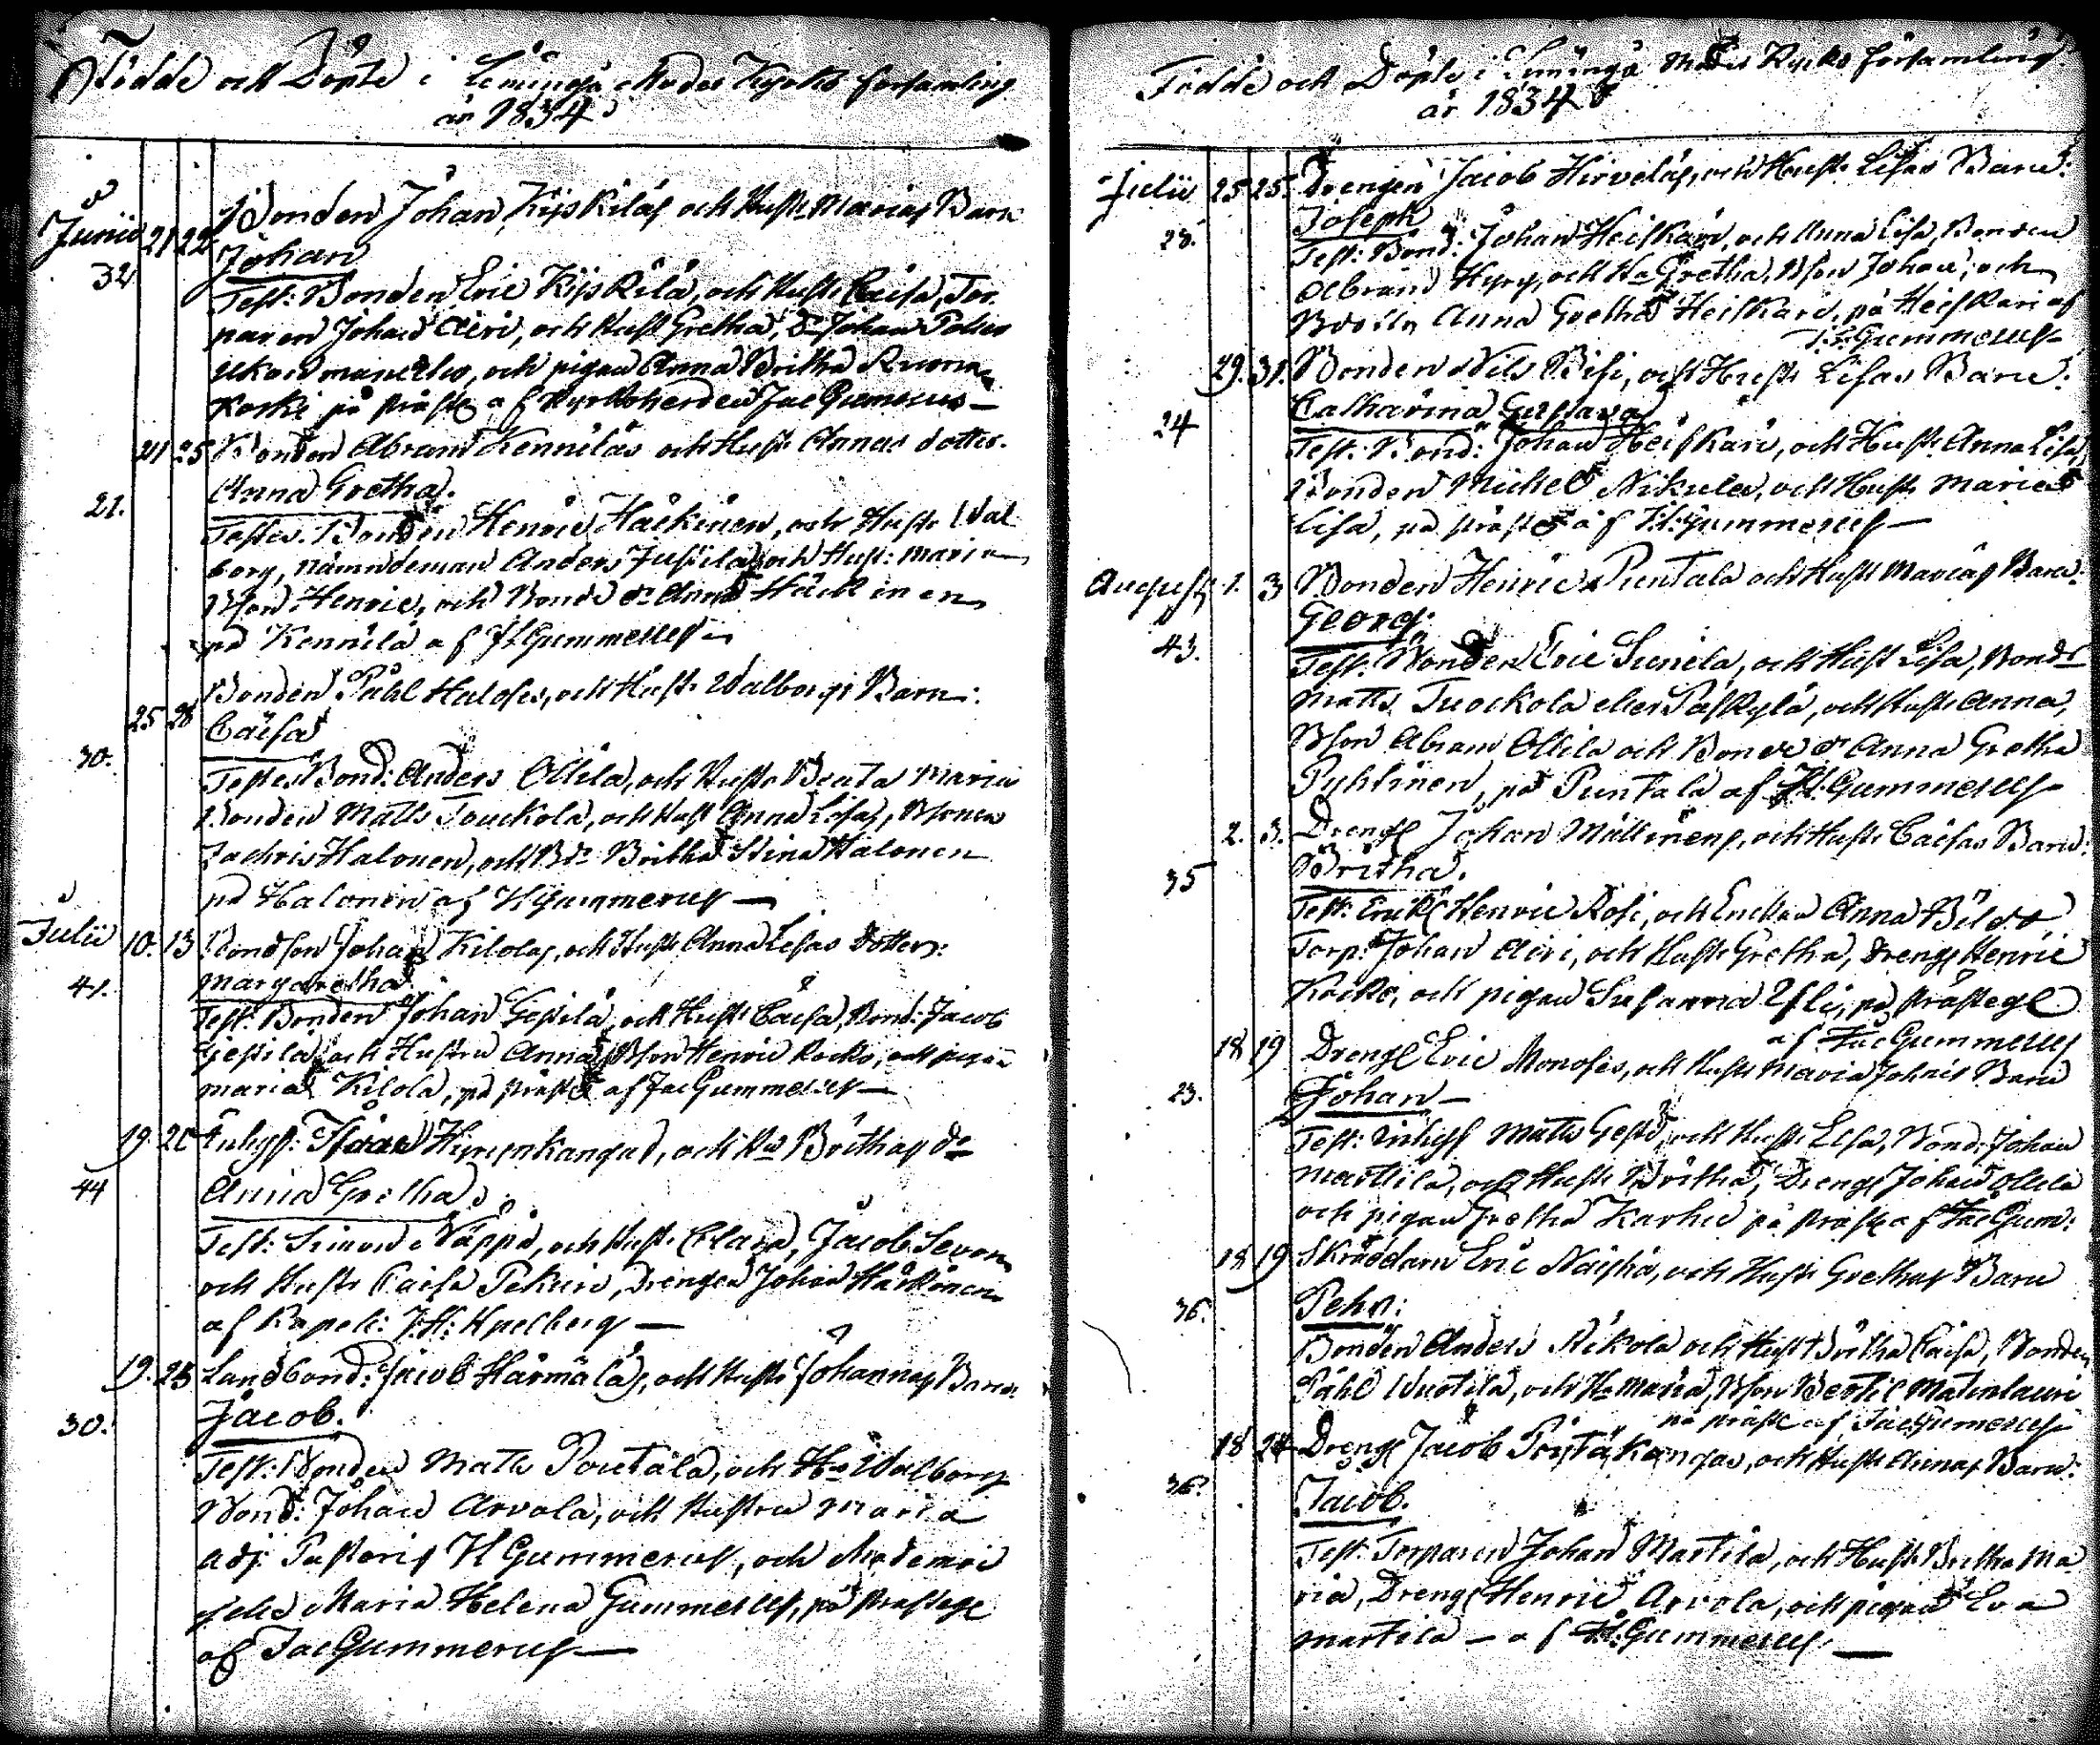 Födde och Döpte i Limingo Moder Kyrko församling
år 1834
Junii 21 22 Bonden Johan Kijskiläs och Hust: Marias Barn
Johan
32
Test: Bonden Eric Kijskilä, och Hust: Caisa, Tor-
paren Johan Airi, och Hust Gretha, Johan
och pigan Anna Britha Ruona
koski på präste af Kyrkoherden Jac Gummerus —
21 25 Bonden Abram Kenniläs och Hust Annas dotter.
Anna Gretha.
21.
Testes. Bonden Henric Häikinen, och Hust: Wal
borg, nämndeman Anders Jussila och Hust: Maria
Bson Henric, och Bonde dr Anna Häikinen
på Kennilä af H Gummerus —
Bonden Påhl Halos, och Hust: Walborgs Barn:
25 28 Caisa
30.
Testes Bond: Anders Ollila, och Hust: Beata Maria
Bonden Matts Touckola, och Hust Anna Lisa, Bsonen
Zachris Halonen, och Bdr Britha Stina Halonen
på Halonen af H Gummerus —
Julii 10. 13 Bondson Johan Kilolas, och Hust: Anna Lisas Dotter:
Margaretha
41.
Test: Bonden Johan Gestilä, och Hust: Caisa, Bond: Jacob
Gestila och Hustru Anna, Bson Henric Kocko, och pigan
Maria Kilola, på präste af Jac Gummerus —
19. 20 Inhys: Hirvenkangas, och Ha Brithas dr
Anna Gretha
44
Test: Simon Näppä, och Hust: Clara, Jacob Sevon
och Hust: Caisa Pekuri, Drengen Johan Häikönen
af Kapell: J: H: Kjelberg —
19. 25 Landbond: Jacob Härmälä, och Hust: Johannas Barn:
Jacob.
30.
Test: Bonden Matts Poutala, och Ha Walborg
Bond: Johan Arvola, och Hustru Maria
Adj: Pastoris H Gummerus, och Mademoi
selle Maria Helena Gummerus, på prästege
af Jac Gummerus —
Födde och Döpte i Limingo Moder Kyrko församling
år 1834
Julii 25 25. Drengen Jacob Hirveläs, och Hust: Lisas Barn:
Joseph
28.
Test: Bond: Johan Heiskari, och Anna Lisa, Bonden
Abram Hyry, och Ha Gretha, Bson Johan, och
Bdottr Anna Gretha Heiskari, på Heiskari af
J: Gummerus
29. 31. Bonden Nils Pisi, och Hust: Lisas Barn:
Catharina Gustava
24
Test: Bond: Johan Heiskari, och Hust: Anna Lisa,
Bonden Michel Nikula, och Hust: Maria
Lisa, på präste af H: Gummerus —
Augusti 1. 3 Bonden Henric Puntala och Hust: Marias Barn:
Georg.
43.
Test: Bonden Eric Sunila, och Hust Lisa, Bond:
Matts Tuockola eller Paskylä, och Hust: Anna,
Bson Abram Ollila och Bonde dr Anna Gretha
Pyhtinen, på Puntala af H: Gummerus
2. 3. Drengs Johan Mattinens, och Hust: Caisas Barn:
Britha.
35
Test: Enkl: Henric Rosi, och Enckan Anna
Torp: Johan Airi, och Hust: Gretha, Drengs Henric
Kocko, och pigan Susanna Yli, på prästege
af Jac Gummerus
18 19 Drengs Eric Monoses, och Hust: Maria Johans Barn
Johan —
23.
Test: Inhyss Matts Gestå, och Hust: Lisa, Bond: Johan
Marttila, och Hust: Britha, Drengs Johan Ollila
och pigan Gretha Karhu på präste af Jac Gum:
18 19 Skräddarn Eric och Hust: Grethas Barn
Pehr:
36.
Bonden Anders Nikola och Hust Britha Caisa, Bonden
Påhl Wuotila, och Ha Maria, Bson Bertil Matinlauri
på präste af Jac Gummerus
18 24 Drengs Jacob Pirttikangas, och Hust: Annas Barn:
Jacob.
36.
Test: Torparen Johan Martila, och Hust: Britha Ma
ria, Drengs Henric Arvola, och pigan Eva
Martila — af H: Gummerus —